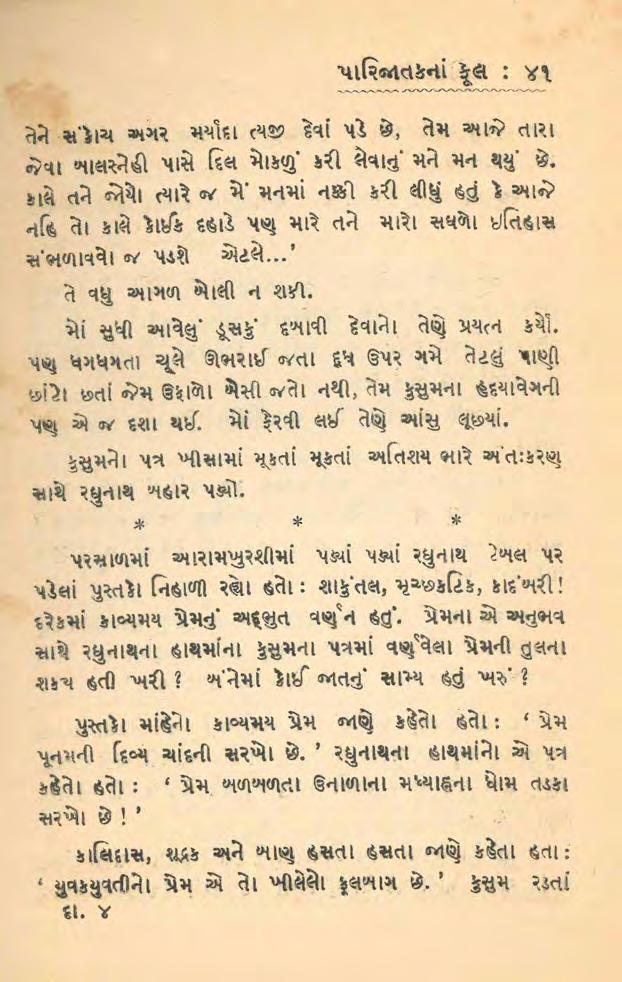 પારિજાતકનાં ફૂલ : ૪૧
તેને સંકોચ અગર મર્યાદા ત્યજી દેવાં પડે છે, તેમ આજે તારા
જેવા બાલસ્નેહી પાસે દિલ મોકળું કરી લેવાનું મને મન થયું છે.
કાલે તને જોયો ત્યારે જ મેં મનમાં નક્કી કરી લીધું હતું કે આજે
નહિ તો કાલે કોઈક દહાડે પણ મારે તને મારો સઘળો ઇતિહાસ
સંભળાવવો જ પડશે એટલે...’
તે વધુ આગળ બોલી ન શકી.
મોં સુધી આવેલું ડૂસકું દબાવી દેવાનો તેણે પ્રયત્ન કર્યો.
પણ ધગધગતા ચૂલે ઊભરાઈ જતા દૂધ ઉપર ગમે તેટલું પાણી
છાંટો છતાં જેમ ઉફાળો બેસી જતો નથી, તેમ કુસુમના હૃદયાવેગની
પણ એ જ દશા થઈ. મોં ફેરવી લઈ તેણે આંસુ લૂછ્યાં.
કુસુમનો પત્ર ખીસામાં મૂકતાં મૂકતાં અતિશય ભારે અંતઃકરણ
સાથે રઘુનાથ બહાર પડ્યો.
* * *
પરસાળમાં આરામખુરશીમાં પડ્યાં પડ્યાં રઘુનાથ ટેબલ પર
પડેલાં પુસ્તકો નિહાળી રહ્યો હતો : શાકુંતલ, મૃચ્છકટિક, કાદંબરી !
દરેકમાં કાવ્યમય પ્રેમનું અદ્ભુત વર્ણન હતું. પ્રેમના એ અનુભવ
સાથે રઘુનાથના હાથમાંના કુસુમના પત્રમાં વર્ણવેલા પ્રેમની તુલના
શક્ય હતી ખરી ? બંનેમાં કોઈ જાતનું સામ્ય હતું ખરું ?
પુસ્તકો માંહેનો કાવ્યમય પ્રેમ જાણે કહેતો હતો : ‘ પ્રેમ
પૂનમની દિવ્ય ચાંદની સરખો છે. ’ રઘુનાથના હાથમાંનો એ પત્ર
કહેતો હતો : ‘ પ્રેમ બળબળતા ઉનાળાના મધ્યાહ્નના ધોમ તડકા
સરખો છે ! ’
કાલિદાસ, શૂદ્રક અને બાણ હસતા હસતા જાણે કહેતા હતા :
‘ યુવકયુવતીનો પ્રેમ એ તો ખીલેલો ફૂલબાગ છે. ’ કુસુમ રડતાં
દા. ૪